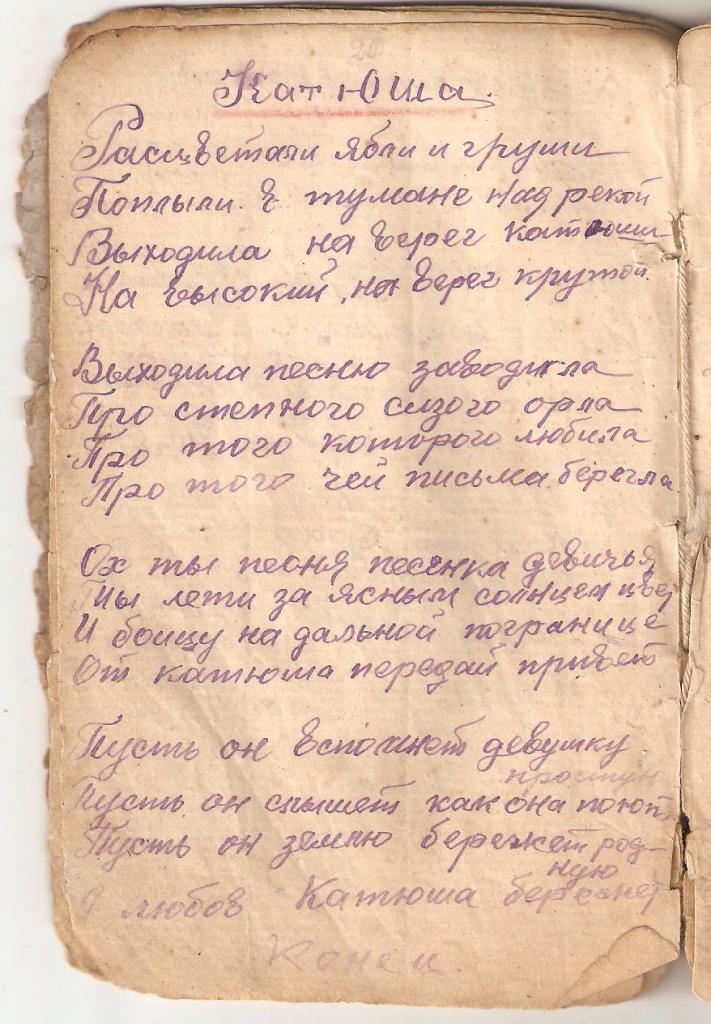 Катюша.
Расцветали ябли и груши
Поплыли в туман над рекой
Выходила на берег катюши
На высокий, на берег крутой.
Выходила песню заводила
Про степного сизого орла
Про того которого любила
Про того чей письма берегла
Ох ты песня песенка девичья
Ты лети за ясным солнцем цвет
И боицу на дальной погранице
От катюма передай привет
Пусть он вспомнет девушку
простую
Пусть он слышет как она поют
Пусть он землю бережет род-
ную
А любов Катюша бережет
Конец.